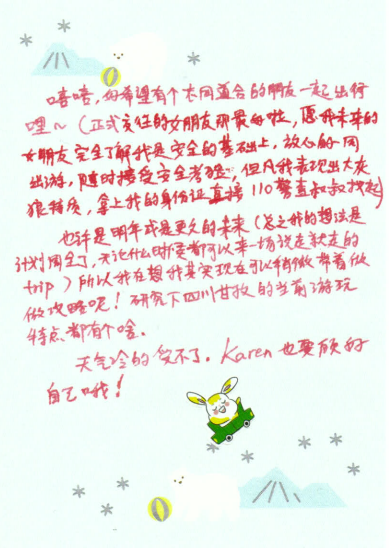 嘻嘻，好希望有个志同道合的朋友一起出行
哩～（正式交往的女朋友那最好啦，愿我未来的
女朋友完全了解我是安全的基础上，放心的同
出游，随时接受安全考验，但凡我表现出大灰
狼特质，拿上我的身份证直接110警查叔叔找起）
也许是明年或是更久的未来（总之我的想法是
计划周全了，无论什么时候都可以来一场说走就走的
trip）所以我在想我其实现在可以稍微带着做
做攻略呢！研究下四川甘孜的当前游玩
特点都有个啥。
天气冷的受不了. Karen也要顾好
自己哦！